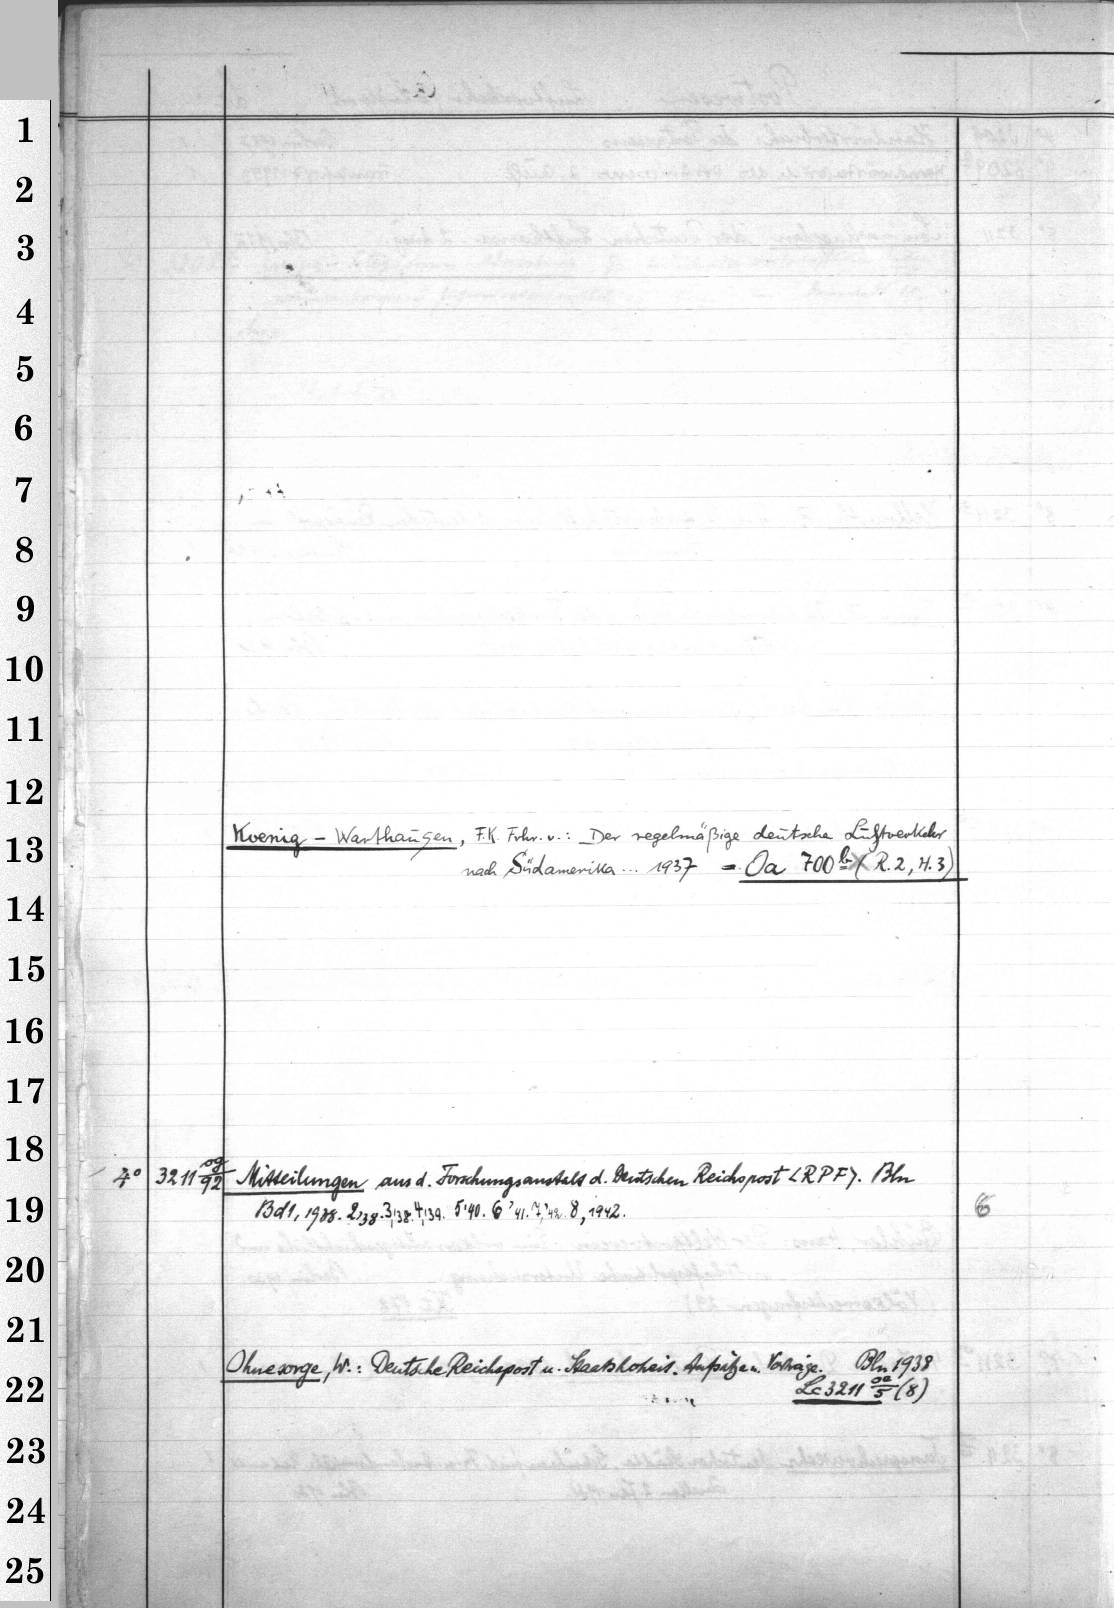 1
2
3
4
5
6
7
8
9
10
11
12
13
Koenig – Warthausen, F.K. Frhr. v.: Der regelmäßige deutsche Luftverkehr
nach Südamerika ... 1937 = Oa 700 b (R. 2, H. 3)
14
15
16
17
18
4° 3211 og/92 Mitteilungen aus d. Forschungsanstalt d. Deutschen Reichspost <RPF>. Bln
19
Bd 1, 1938. 2,38. 3,38. 4,39. 5,'40. 6,'41. 7,'42. 8, 1942.
6
20
21
Ohnesorge, W.: Deutsche Reichspost u. Staatshoheit. Aufsätze u. Vorträge. Bln 1938
22
Lc 3211 oa/5 (8)
23
24
25